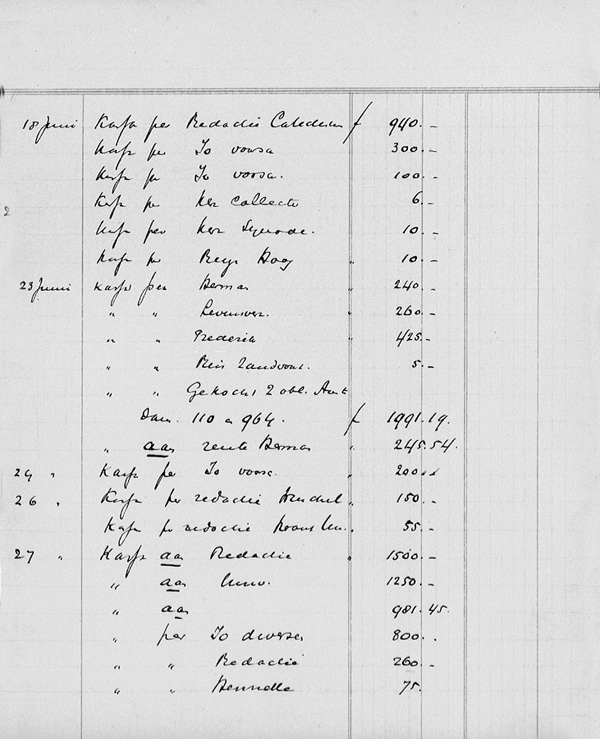 18 Juni Kassa per Redactie f 940.-
Kassa per Jo voorsc 300.-
Kassa per Jo voorsc. 100.-
Kassa per Ker Collecte 6.-
Kassa per Ker Synode. 10.-
Kassa per Reys Haag " 10.-
23 Juni Kassa per Herman " 240.-
" " Levensver. " 260.-
" " Frederik " 425.-
" " Reis Zandvoort. " 5.-
" " Gekocht 2 obl. Amst
Dam. 110 a 964. f 1991.19.
" aan rente Herman " 245.54.
24 " Kassa per Jo voorsc. " 200..
26 " Kassa per redactie " 150.-
Kassa per redactie " 55.-
27 " Kassa aan Redactie " 1500.-
" aan 1250.-
" aan 981.45.
" per Jo diverse 800..
" " Redactie 260.-
" " 75.
2